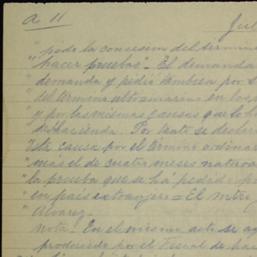 a 11
Jul
"poda la concesion del termino
"hacer pruebas". El demanda
demanda y pedio tambien por
del termino ultramarino en
y por las mismas causas que lo h
de hacienda. Por tanto se declar
la causa por el termino ordinar
mas el de cuatro meses
"la prueba que se ha pedido
en pais extrangero = El
Alvarez
nota: En el mismo acto se
producido por el Fiscal de hac